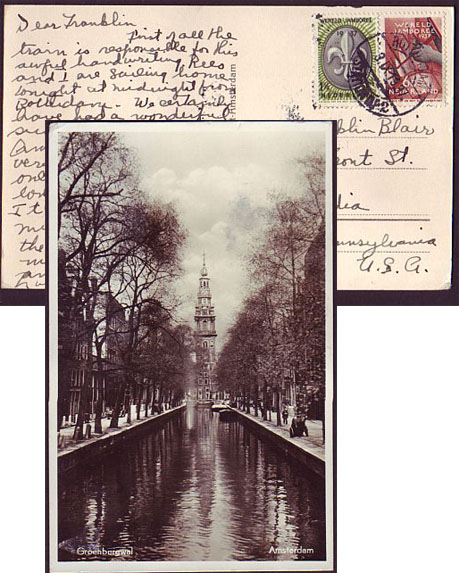 Dear Franklin
First of all the
train is responsible for this
awful handwriting. Rees
and I are sailing home
tonight at midnight from
Rotterdam. We certainly
have had a wonderful
very
only
I t
the
Amsterdam
WERELD JAMBOREE
1937
WERELD JAMBOREE
1937
NEDERLAND
klin Blair
ont St.
dia
nnsylvania
U.S.A.
Groenburgwal
Amsterdam